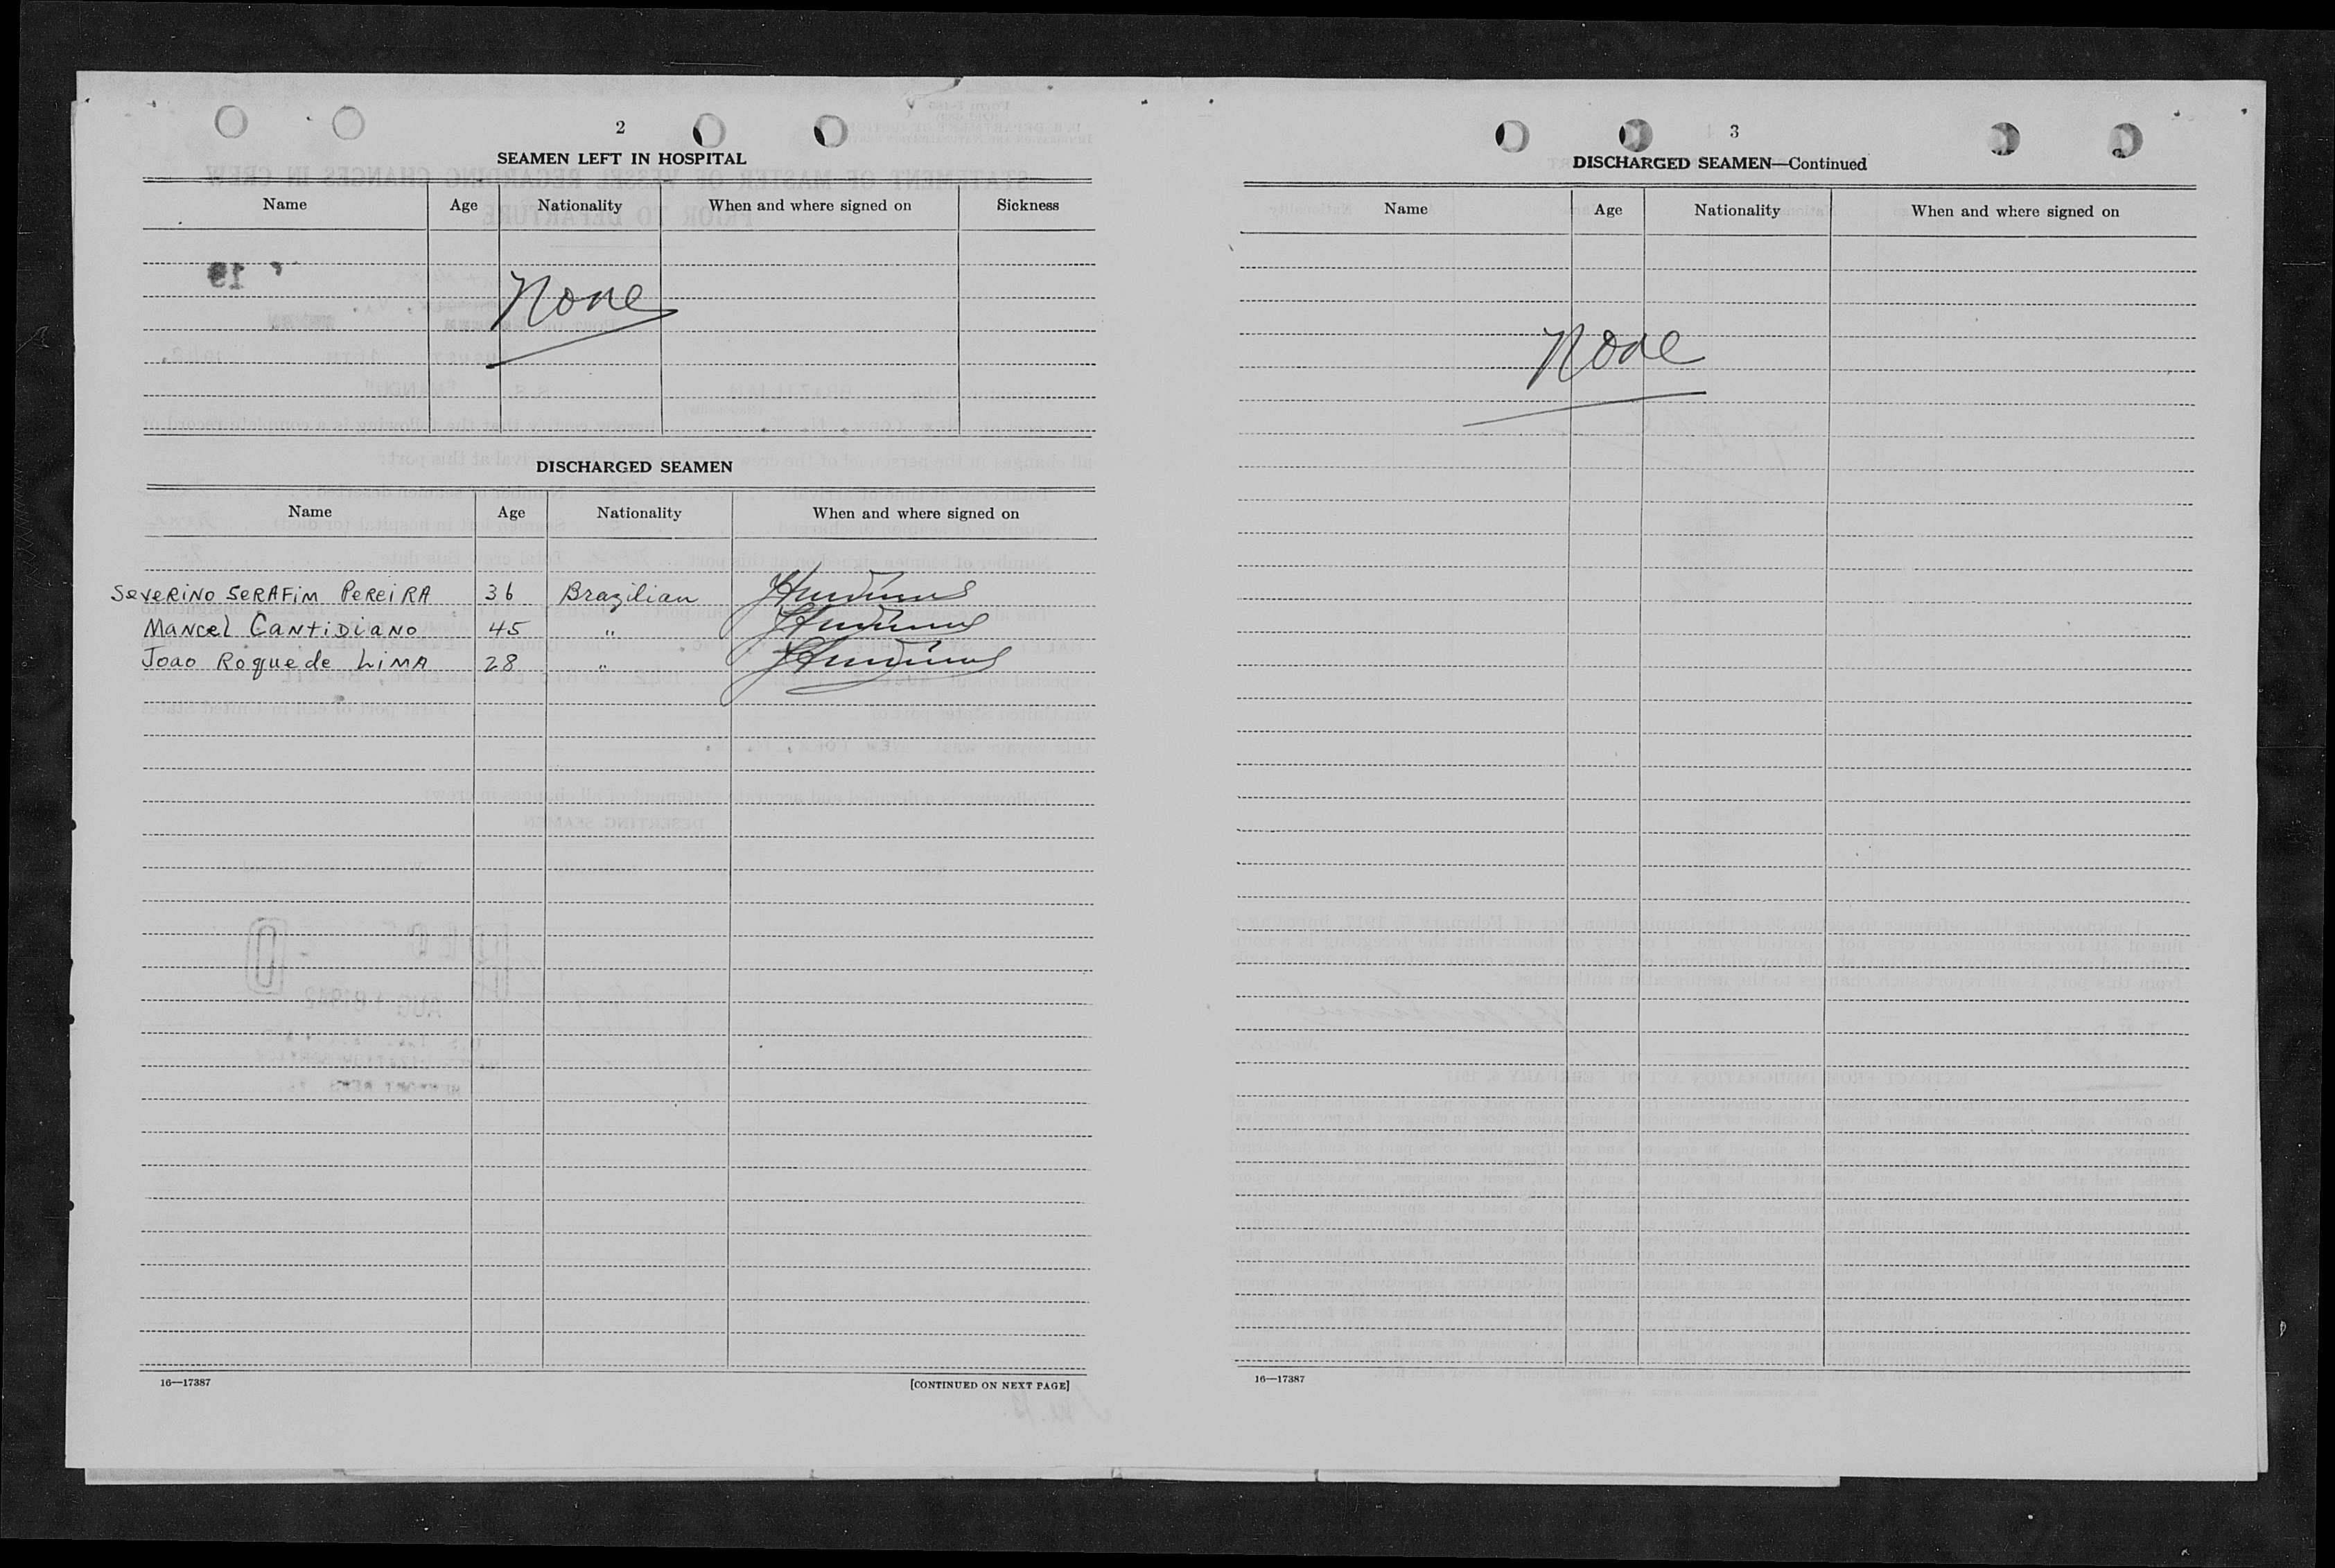 2
SEAMEN LEFT IN HOSPITAL
Name Age Nationality When and where signed on Sickness
None
DISCHARGED SEAMEN
Name Age Nationality When and where signed on
SEVERINO SERAFIM PEREIRA 36 Brazilian
MANCEL CANTIDIANO 45 "
JOAO ROQUE de LIMA 28 "
16—17387 [CONTINUED ON NEXT PAGE]
3
DISCHARGED SEAMEN—Continued
Name Age Nationality When and where signed on
None
16—17387